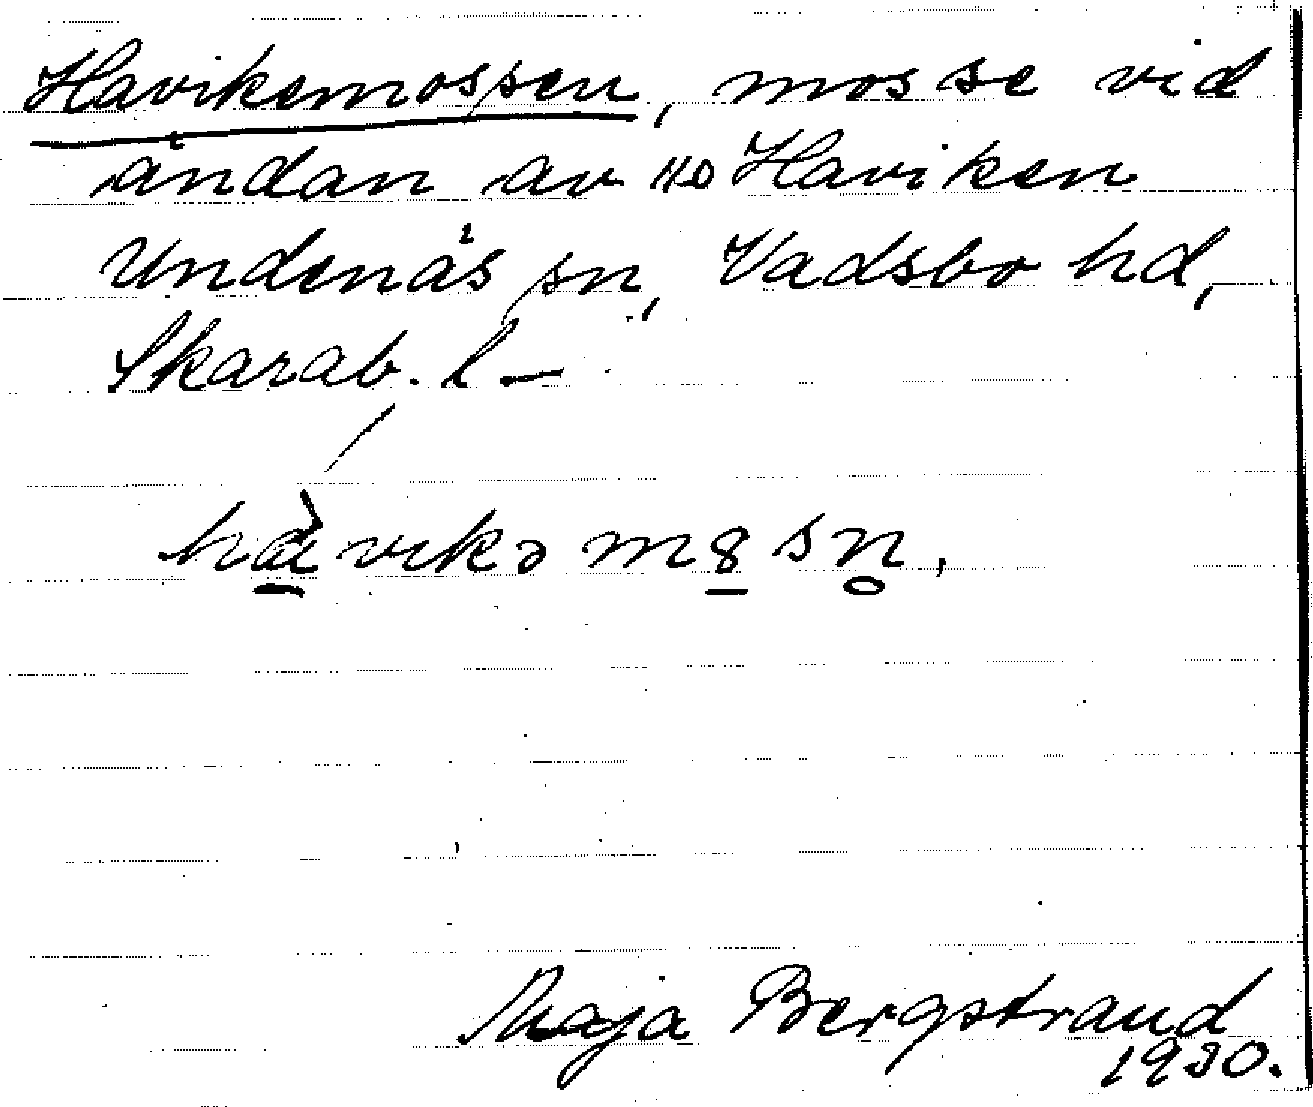 Havikemossen, mosse vid
ändan av Haviken
Undenäs sn, Vadsbo hd,
Skarab. l –
Maja Bergstrand
1930.